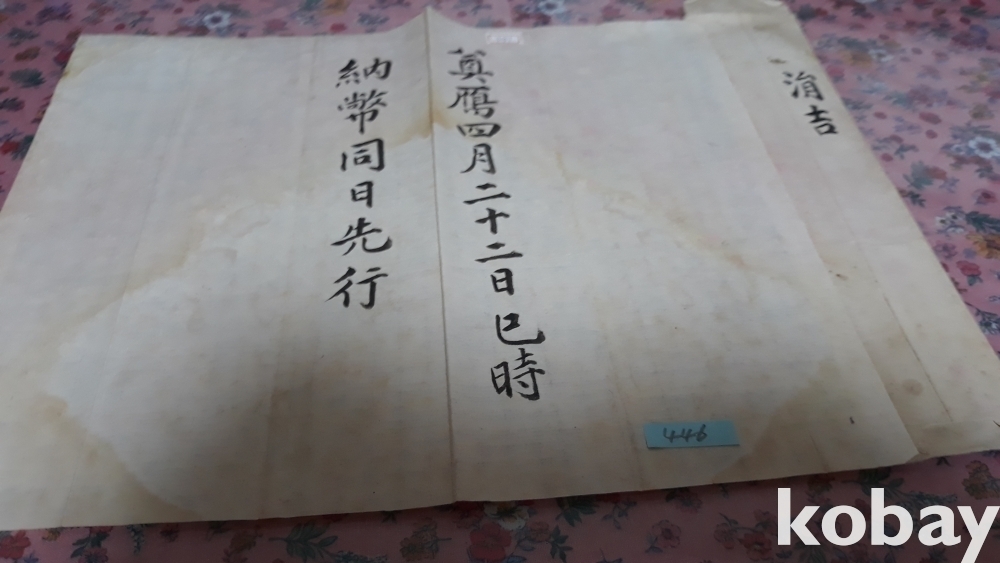 涓吉
奠鴈四月二十二日巳時
納幣同日先行
446
kobay